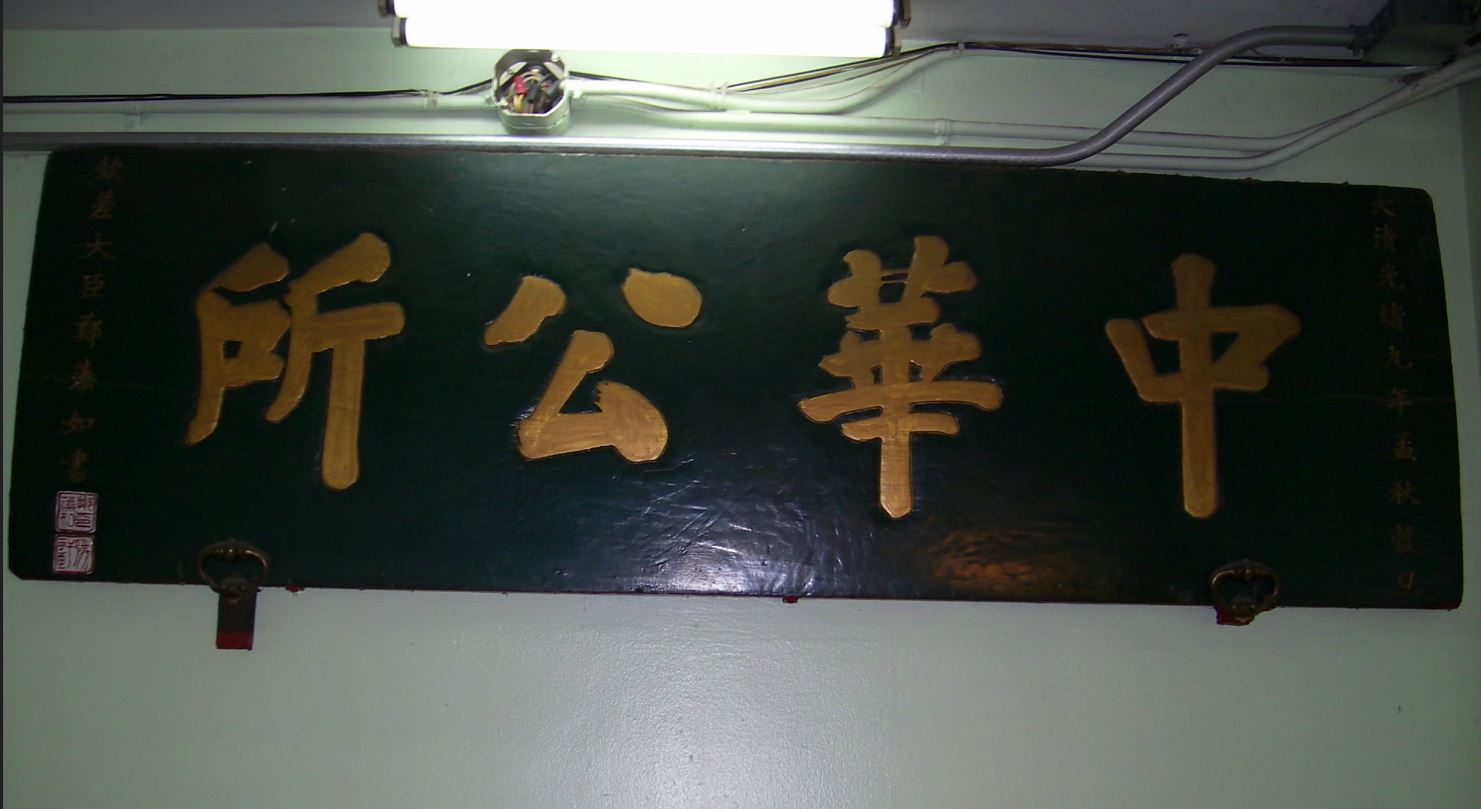 大清光緒九年孟秋穀旦
中華公所
欽差大臣鄭藻如書